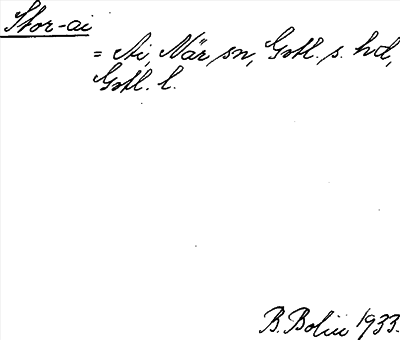 Stor-ai
= Ai, När sn, Gotl. s. hd,
Gotl. l.
B. Bolin 1933.